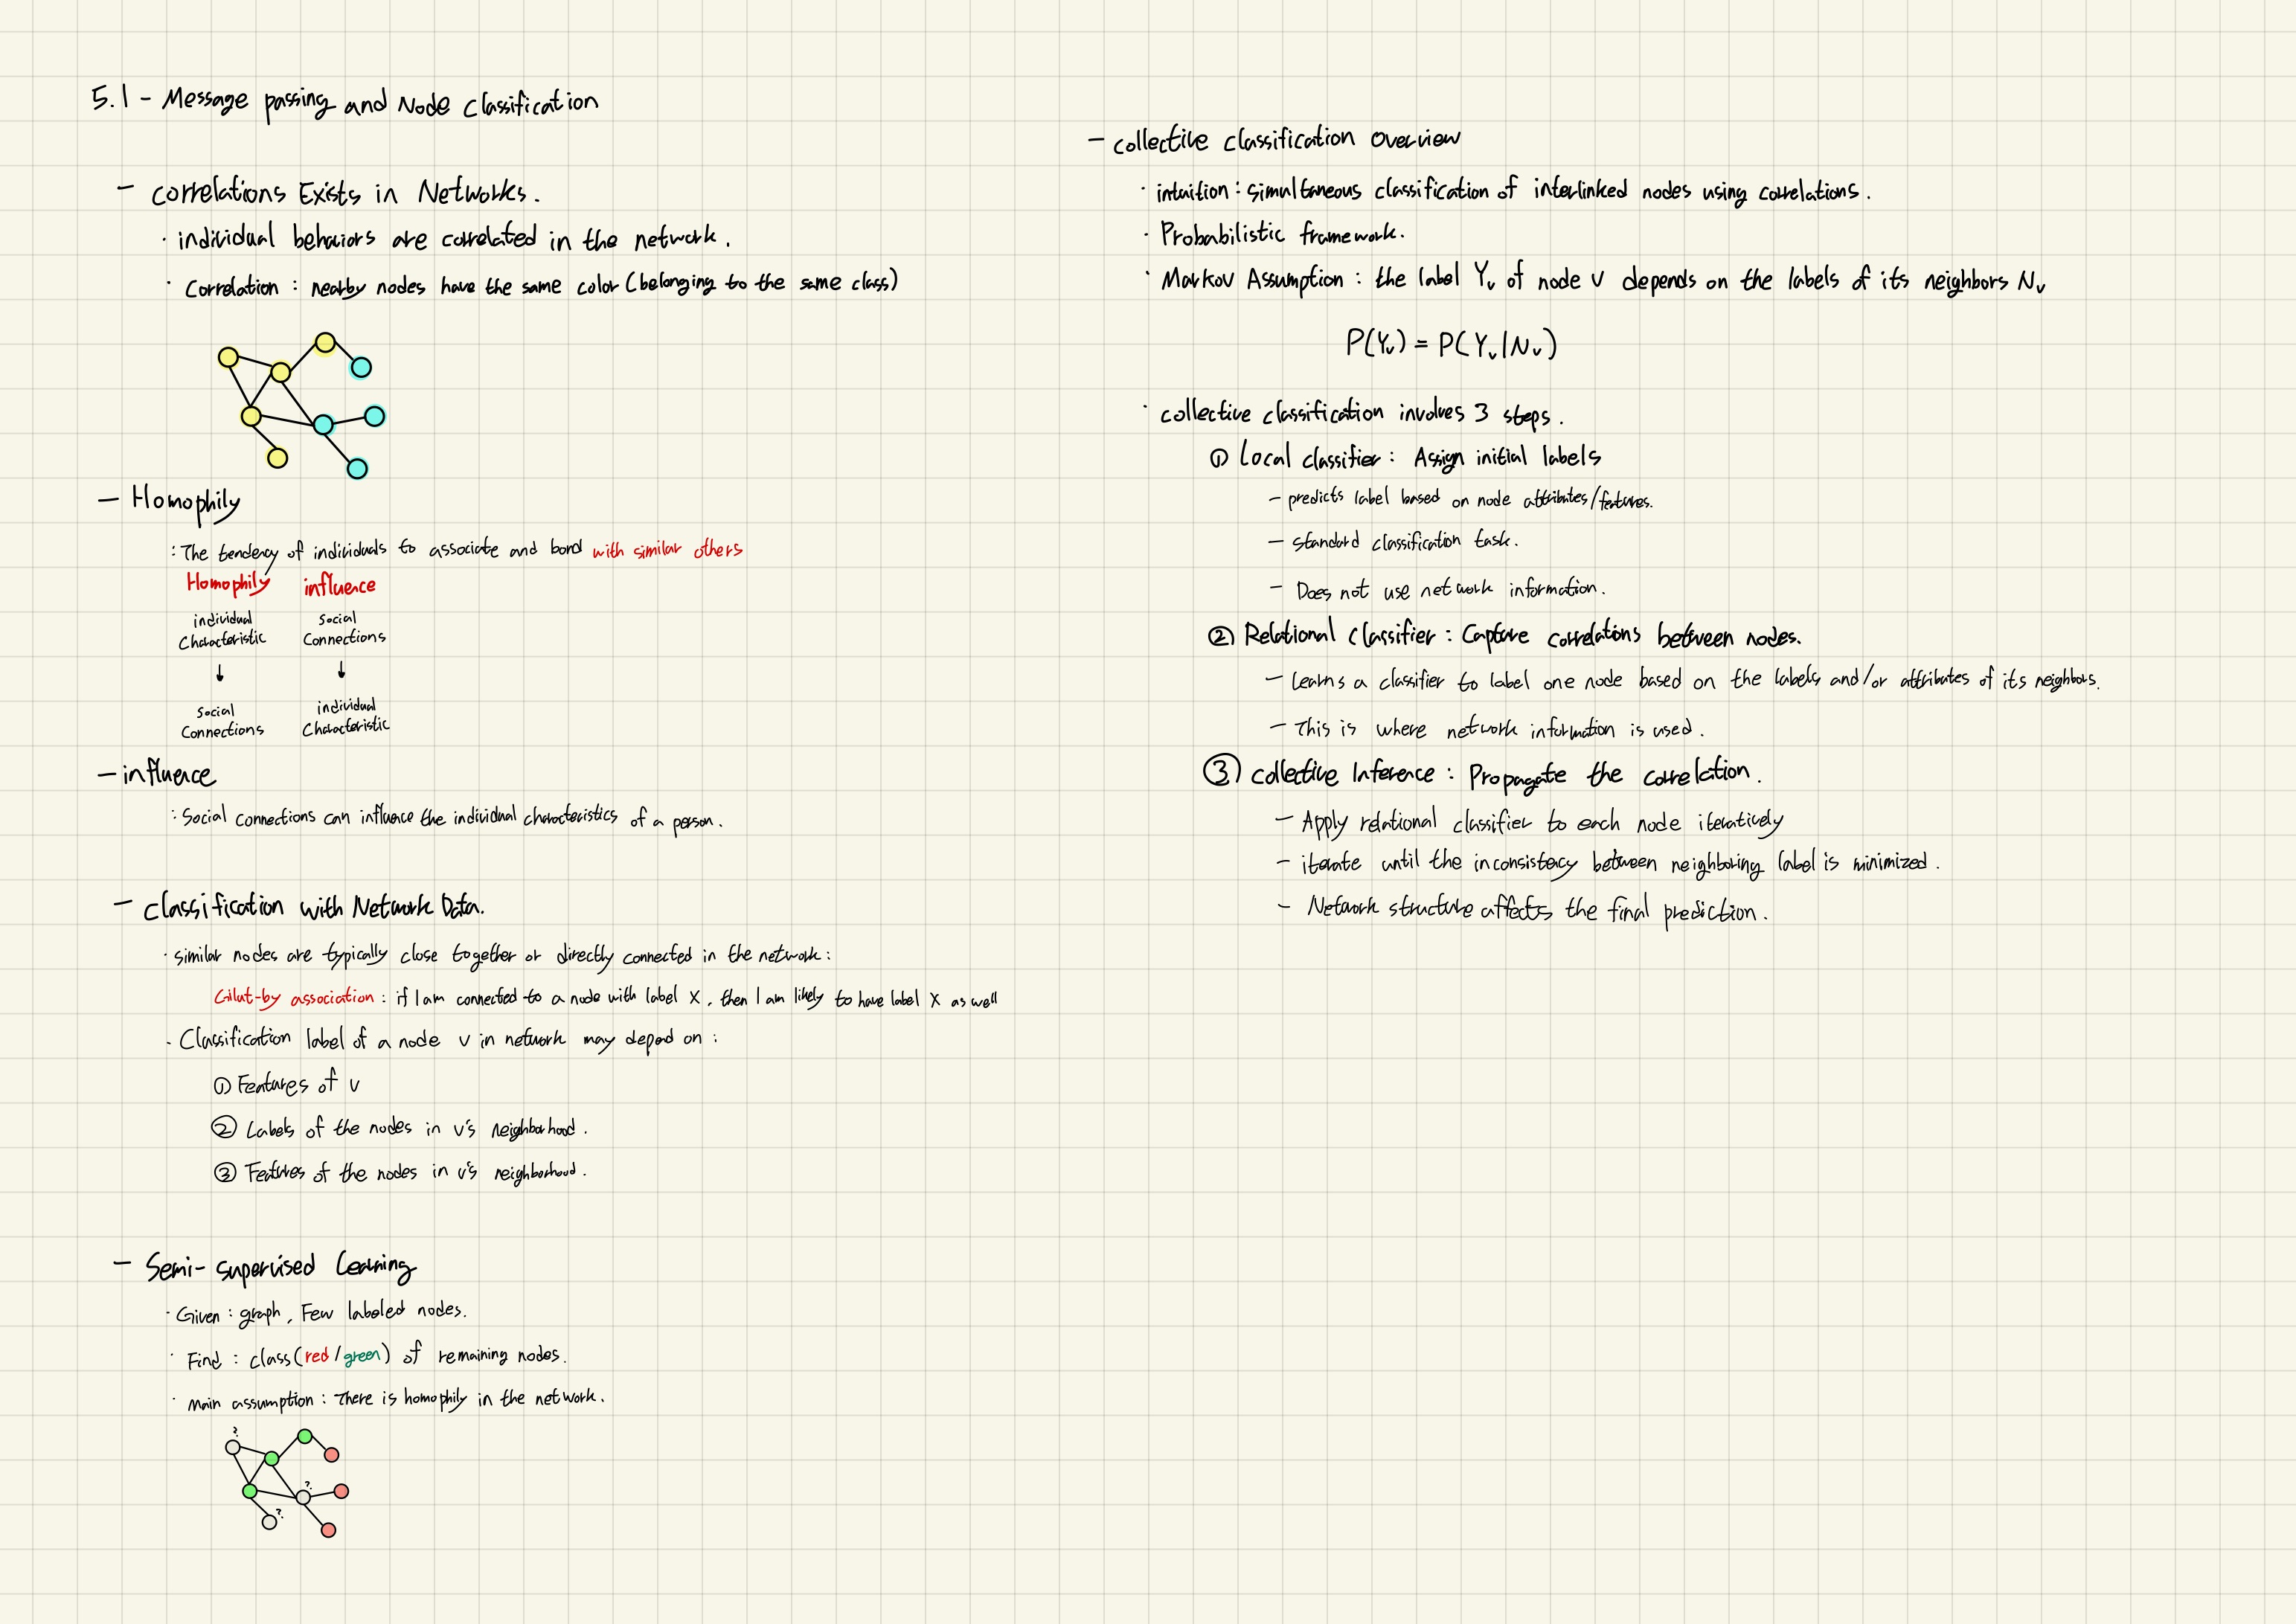 5.1 - Message passing and Node Classification
- Correlations Exists in Networks.
· individual behaviors are correlated in the network.
· Correlation : nearby nodes have the same color (belonging to the same class)
- Homophily
: The tendency of individuals to associate and bond with similar others
Homophily influence
individual Characteristic
social Connections
↓ ↓
Social Connections
individual Characteristic
- influence
: Social connections can influence the individual characteristics of a person.
- Classification with Network Data.
· similar nodes are typically close together or directly connected in the network :
Gilut-by association : if I am connected to a node with label X, then I am likely to have label X as well
· Classification label of a node v in network may depend on :
① Features of v
② Labels of the nodes in v's neighborhood.
③ Features of the nodes in v's neighborhood.
- Semi-supervised Learning
· Given : graph, Few labeled nodes.
· Find : class (red / green) of remaining nodes.
· Main assumption : There is homophily in the network.
?
?
?
- collective classification overview
· intuition : simultaneous classification of interlinked nodes using correlations.
· Probabilistic framework.
· Markov Assumption : the label Yᵥ of node v depends on the labels of its neighbors Nᵥ
P(Yᵥ) = P(Yᵥ|Nᵥ)
· collective classification involves 3 steps.
① Local classifier : Assign initial labels
- predicts label based on node attributes/features.
- standard classification task.
- Does not use network information.
② Relational classifier : Capture correlations between nodes.
- Learns a classifier to label one node based on the labels and/or attributes of its neighbors.
- This is where network information is used.
③ collective Inference : Propagate the correlation.
- Apply relational classifier to each node iteratively
- iterate until the inconsistency between neighboring label is minimized.
- Network structure affects the final prediction.